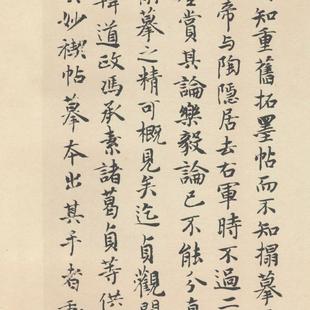 知重舊拓墨帖而不知搨摹
帝与陶隱居去右軍時不過二
賞其論樂毅論已不能分真
摹之精可概見矣迄貞觀間
道政馮承素諸葛貞等供
妙禊帖摹本出其手者